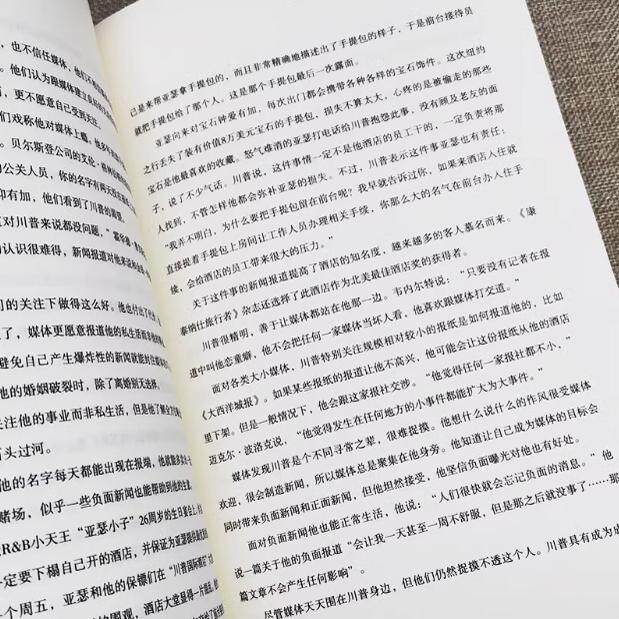 也不信任媒体，
他们认为跟媒体建立
更不愿意自己受到关注
们戏称他对媒体上瘾
贝尔斯登公司的文化
的公关人员，你的名字有两天
抑有加，他们看到了川普的
对川普来说都没问题，”
的认识很难得，新闻报道对他来说
们的关注下做得这么好。他也
了，媒体更愿意报道他的私生活
避免自己产生爆炸性的新闻就能
他的婚姻破裂时，除了离婚别无选择
关注他的事业而非私生活，但是他了解
石头过河。
他的名字每天都能出现在报端，他就能
赌场，似乎一些负面新闻也能帮助到他的
R&B小天王“亚瑟小子”26周岁的生日宴会上
一定要下榻自己开的酒店，并保证为亚瑟提供
个周五，亚瑟和他的保镖们在“川普国际酒店”
的围观，酒店大堂显得一片混乱
己是来帮亚瑟拿手提包的，而且非常精确地描述出了手提包的样子，于是前台接待员
就把手提包给了那个人，这是那个手提包最后一次露面。
亚瑟向来对宝石钟爱有加，每次出门都会携带各种各样的宝石饰件。这次纽约
之行丢失了装有价值8万美元宝石的手提包，损失不算太大，心疼的是被偷走的那些
宝石是他最喜欢的收藏。怒气难消的亚瑟打电话给川普抱怨此事，没有顾及老友的面
子，说了不少气话。川普说，这件事情一定不是他酒店的员工干的，一定负责将那
人找到，不管怎样他都会弥补亚瑟的损失。不过，川普表示这件事亚瑟也有责任：
“我弄不明白，为什么要把手提包留在前台呢？我早就告诉过你，如果来酒店入住就
直接提着手提包上房间让工作人员办理相关手续，你那么大的名气在前台办入住手
续，会给酒店的员工带来很大的压力。”
关于这件事的新闻报道提高了酒店的知名度，越来越多的客人慕名而来。《康
泰纳仕旅行者》杂志还选择了此酒店作为北美最佳酒店奖的获得者。
川普很精明，善于让媒体都站在他那一边。韦内尔特说：“只要没有记者在报
道中叫他恋童癖，他不会把任何一家媒体当坏人看，他喜欢跟媒体打交道。”
面对各类大小媒体，川普特别关注规模相对较小的报纸是如何报道他的，比如
《大西洋城报》。如果某些报纸的报道让他不高兴，他可能会让这份报纸从他的酒店
里下架。但是一般情况下，他会跟这家报社交涉。“他觉得任何一家报社都不小，”
迈克尔·波洛克说，“他觉得发生在任何地方的小事件都能扩大为大事件。”
媒体发现川普是个不同寻常之辈，很难捉摸。他想什么说什么的作风很受媒体
欢迎，很会制造新闻，所以媒体总是聚集在他身旁。他知道让自己成为媒体的目标会
同时带来负面新闻和正面新闻，但他坦然接受，他坚信负面曝光对他也有好处。
面对负面新闻他也能正常生活，他说：“人们很快就会忘记负面的消息。”他
说一篇关于他的负面报道“会让我一天甚至一周不舒服，但是那之后就没事了……那
篇文章不会产生任何影响”。
尽管媒体天天围在川普身边，但他们仍然捉摸不透这个人。川普具有成为成